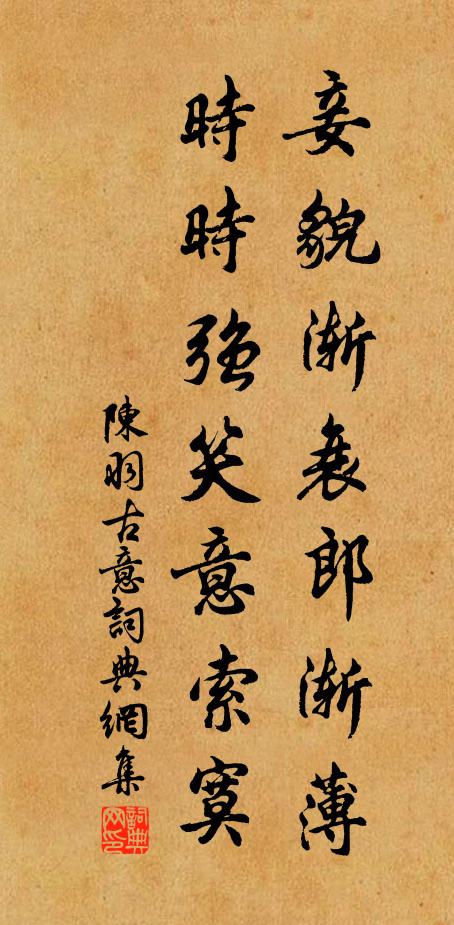 妾貌渐衰郎渐薄
時時強笑意索寞
陳羽古意詞典網集
詞典网印